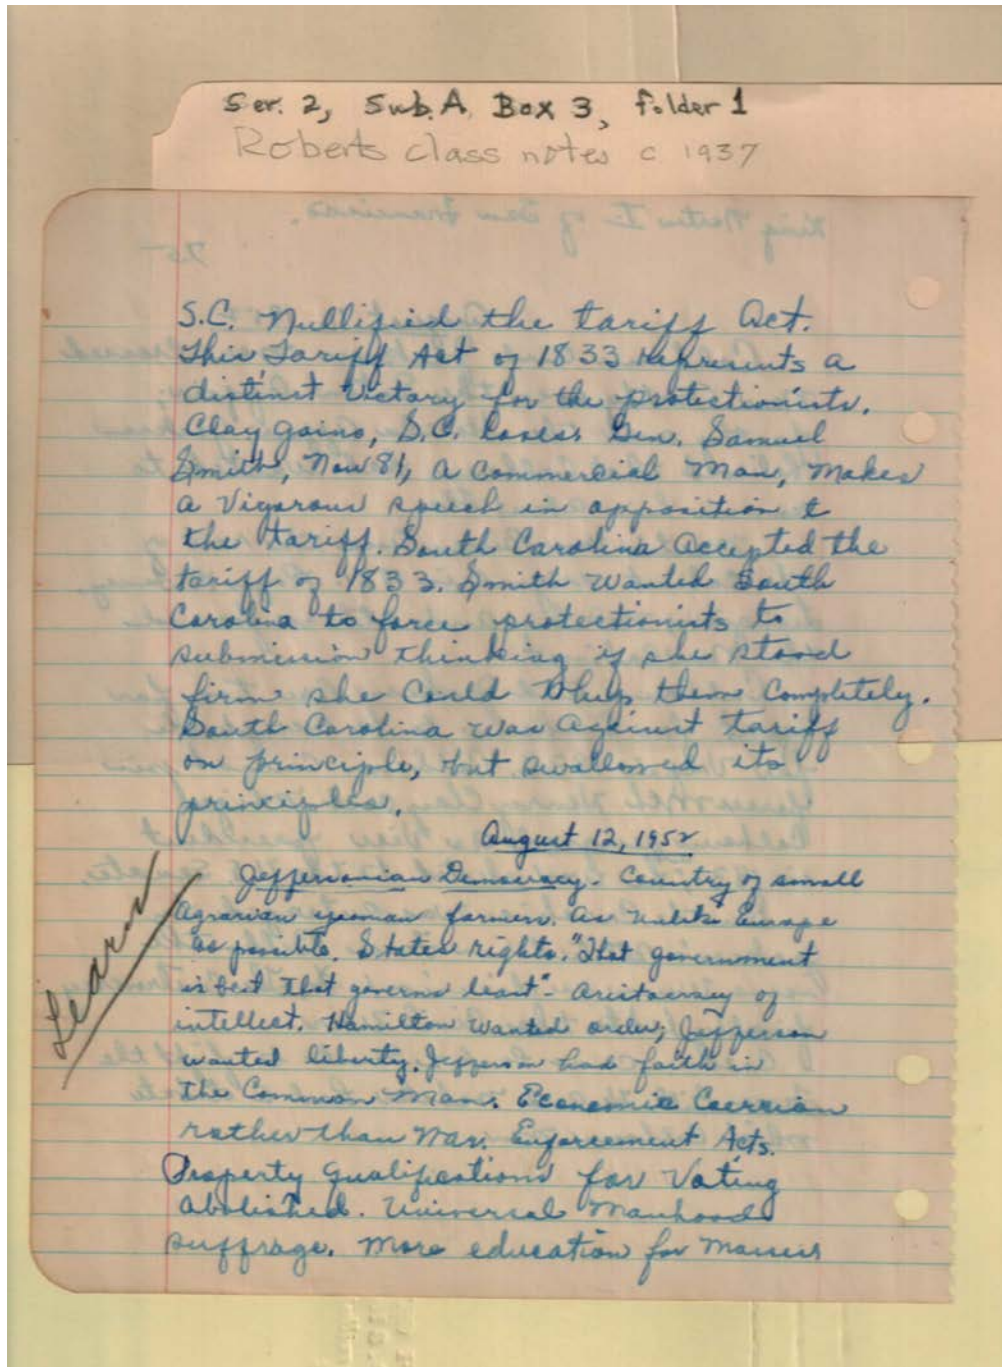 Ser. 2, Sub. A Box 3, folder 1
Roberts class notes c 1937
S.C. Nullified the tariff Act.
This Tariff Act of 1833 represents a
distinct Victory for the protectionists.
Clay gains, S.C. loses. Gen. Samuel
Smith, Now 81, a Commercial Man, Makes
a Vigorous speech in opposition to
the tariff. South Carolina Accepted the
tariff of 1833. Smith wanted South
Carolina to force protectionists to
submission thinking if she stood
firm she Could them Completely.
South Carolina was Against tariff
on principle, but swallowed its
principles.
August 12, 1952
Jeffersonian Democracy. Country of small
Agrarian yeoman farmers. As unlike Europe
as possible. States rights. "That government
is best that governs least" - Aristocracy of
intellect. Hamilton wanted order; Jefferson
wanted liberty. Jefferson had faith in
the Common Man. Economic Coercion
rather than War. Enforcement Acts.
Property Qualifications for Voting
Abolished. Universal Manhood
suffrage. More education for Masses
Learn